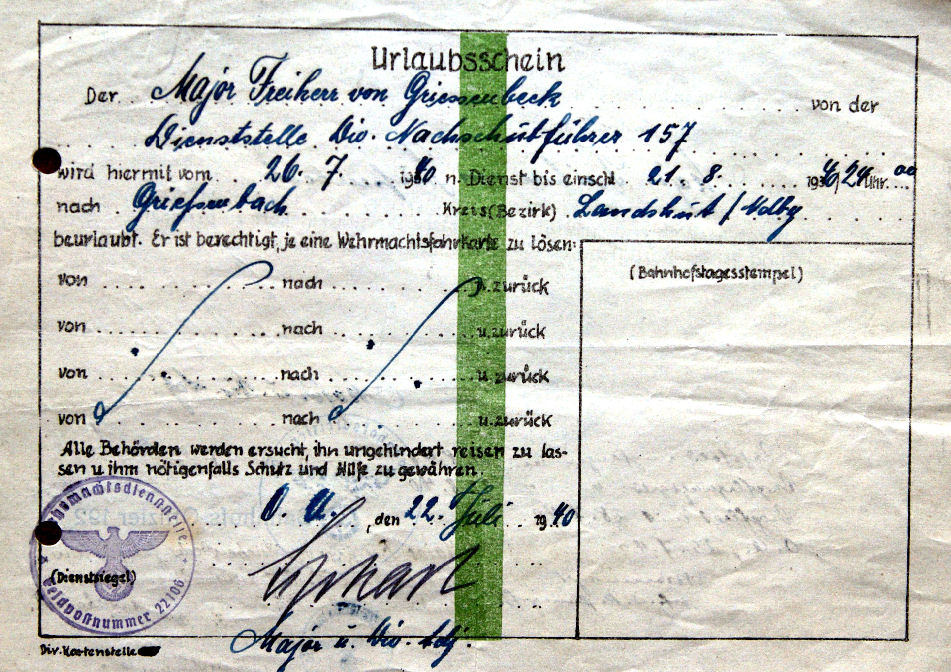 Urlaubsschein
Der Major Freiherr von Griessenbeck von der
Dienststelle Div. Nachschubführer 157
wird hiermit vom 26. 7. 1940 n. Dienst bis einschl. 21. 8. 1940, 24 Uhr 00
nach Griessenbach Kreis (Bezirk) Landshut / Ndby
beurlaubt. Er ist berechtigt, je eine Wehrmachtsfahrkarte zu lösen:
(Bahnhofstagesstempel)
von nach u. zurück
von nach u. zurück
von nach u. zurück
von nach u. zurück
Alle Behörden werden ersucht, ihn ungehindert reisen zu las-
sen u ihm nötigenfalls Schutz und Hilfe zu gewähren.
O. U. , den 22. Juli 1940
(Dienstsiegel)
Feldpostnummer 22106
Major u. Div. Adj.
Div. Kartenstelle